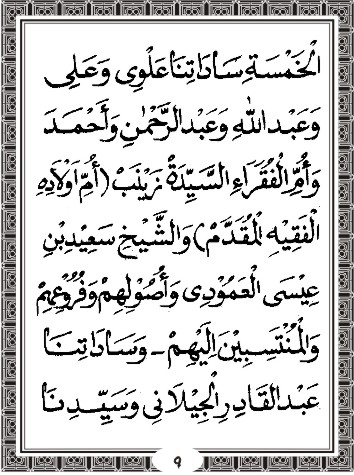 الْخَمْسَةِ سَادَاتِنَا عَلْوِى وَعَلِى
وَعَبْدِ اللهِ وَعَبْدِ الرَّحْمٰنِ وَأَحْمَدَ
وَأُمِّ الْفُقَرَاءِ السَّيِّدَةْ زَيْنَبْ (أُمِّ اَوْلَادِهِ
الْفَقِيْهِ الْمُقَدَّمْ) وَالشَّيْخِ سَعِيْدِ بْنِ
عِيْسَى الْعَمُوْدِى وَأُصُوْلِهِمْ وَفُرُوْعِهِمْ
وَالْمُنْتَسِبِيْنَ اِلَيْهِمْ - وَسَادَاتِنَا
عَبْدِ الْقَادِرِ الْجِيْلَانِي وَسَيِّدِنَا
٩